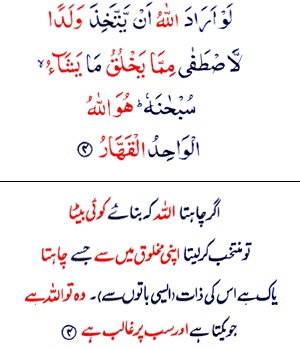 لَوْ اَرَادَ اللّٰهُ اَنْ يَّتَّخِذَ وَلَدًا
لَّاصْطَفٰى مِمَّا يَخْلُقُ مَا يَشَآءُ ۙ
سُبْحٰنَهٗ ؕ هُوَ اللّٰهُ
الْوَاحِدُ الْقَهَّارُ ﴿۴﴾
اگر چاہتا اللہ کہ بنائے کوئی بیٹا
تو منتخب کرلیتا اپنی مخلوق میں سے جسے چاہتا
پاک ہے اس کی ذات (ایسی باتوں سے)۔ وہ تو اللہ ہے
جو یکتا ہے اور سب پر غالب ہے ﴿۴﴾